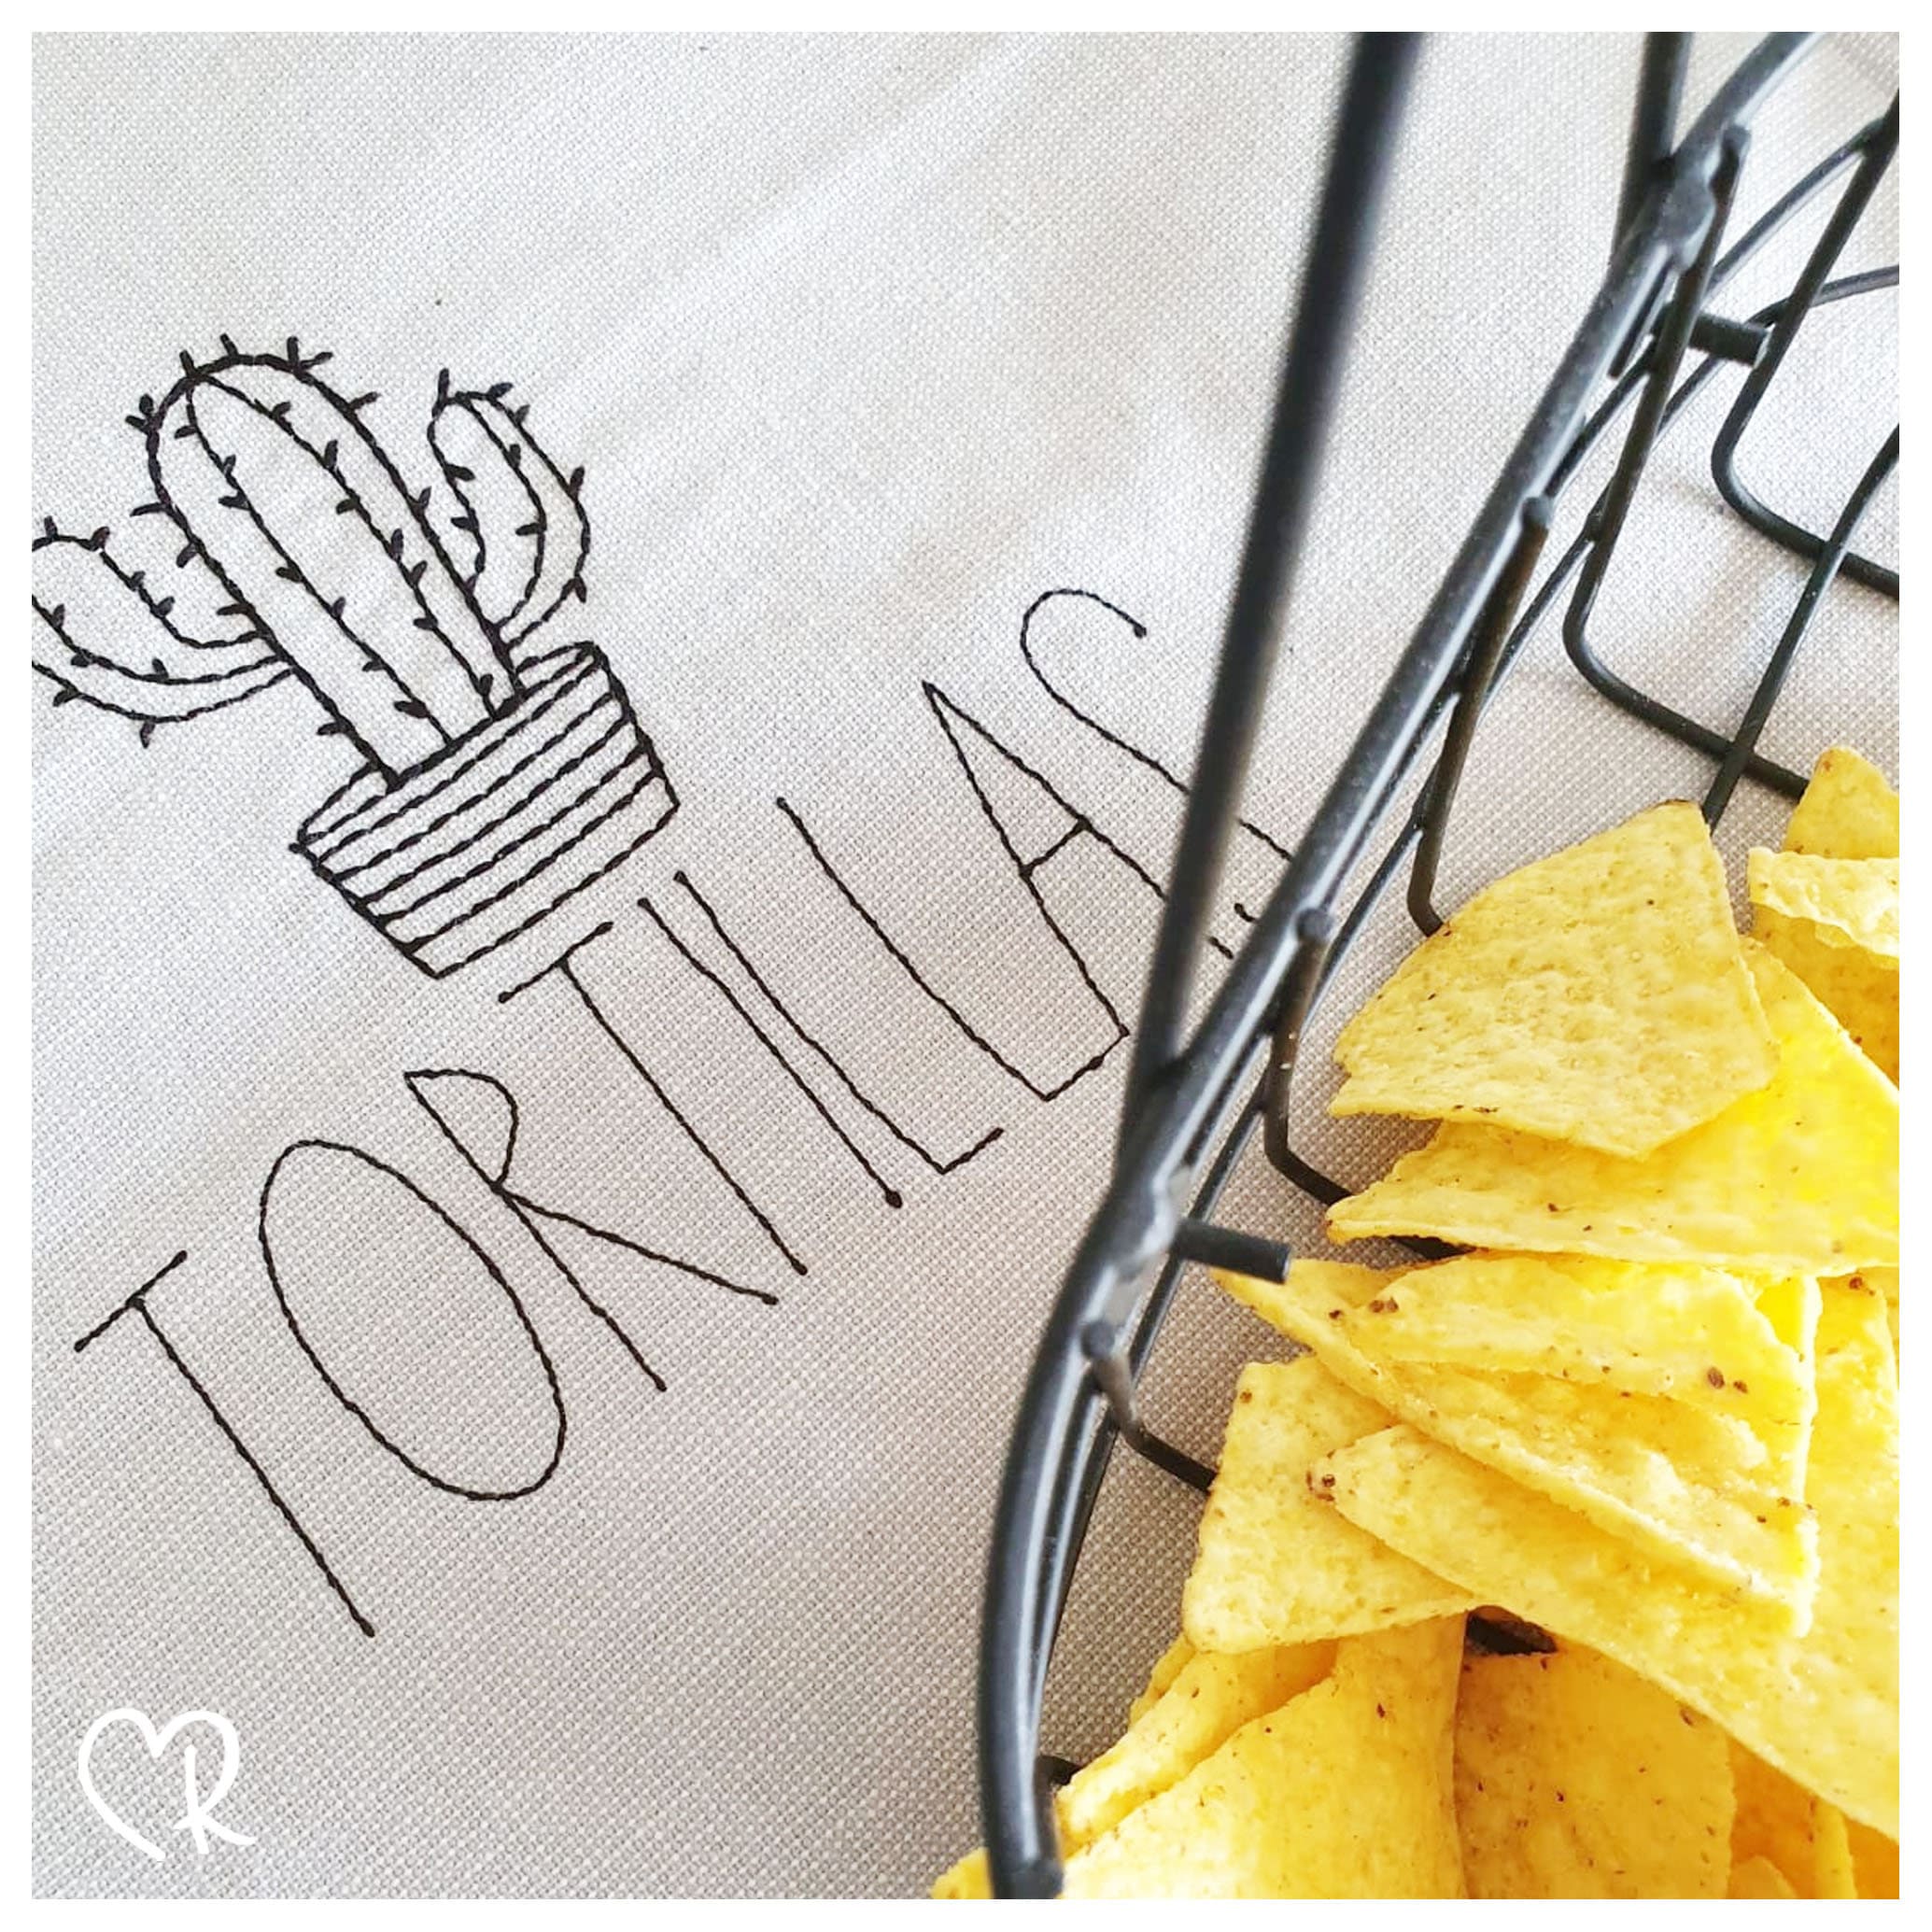 TORTILLAS
R